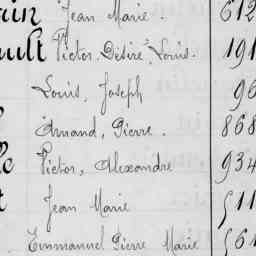 Jean Marie. 612
Victor, Désiré, Louis. 191
Louis, Joseph 96
Amand, Pierre. 868
Victor, Alexandre 934
Jean Marie 511
Emmanuel Pierre Marie 561